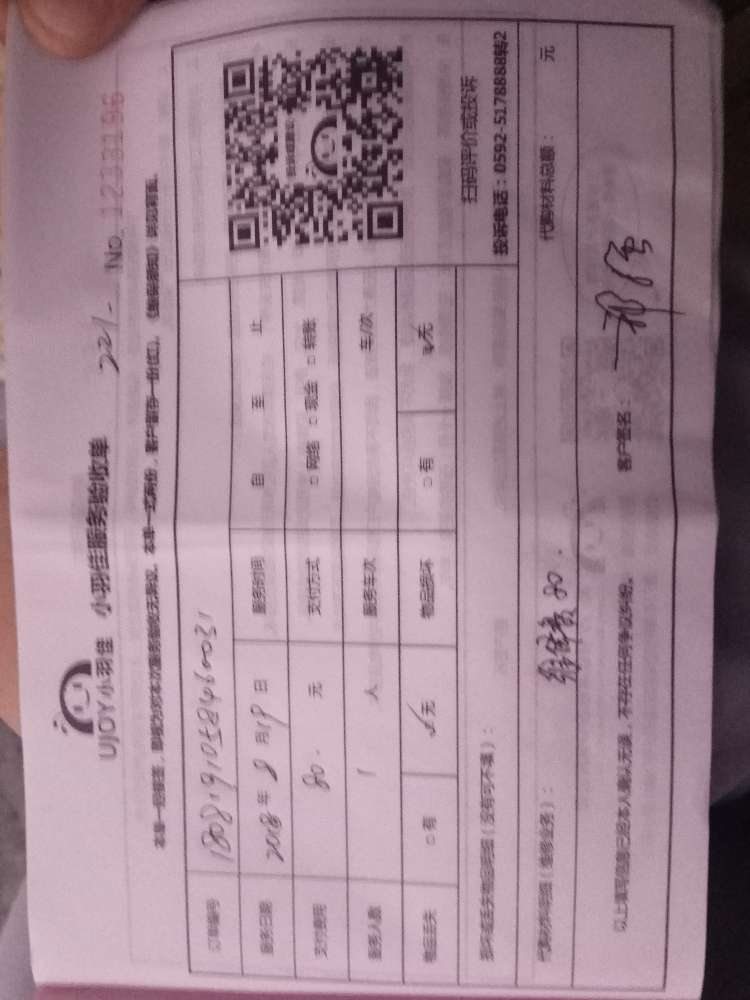 UJOY小羽佳 小羽佳服务验收单 221- No. 1233196
本单一经签字，即视为对本次服务验收无异议。本单一式两份，客户留存一份(红)。
订单编号
服务日期 2018年8月19日 服务时间 自 至 止
支付费用 80. 元 支付方式 □网络 □现金 □转账
服务人数 1 人 服务车次 车/次
物品丢失 □有 ☑无 物品损坏 □有 ☑无
扫码评价或投诉
投诉电话：0592-5178888转2
损坏或丢失物品明细（没有可不填）：
代购材料明细（维修业务）： 80. 代购材料总额： 元
以上填写信息已经本人确认无误，不存在任何争议纠纷。 客户签名：